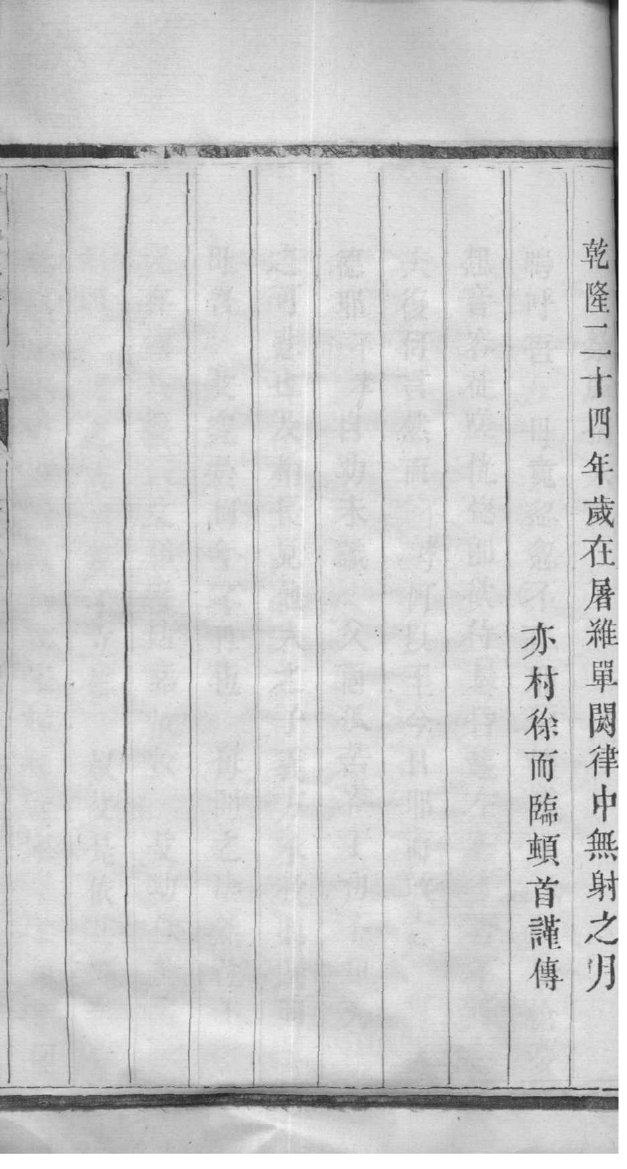 乾隆二十四年歲在屠維單閼律中無射之月
亦村徐而臨頓首謹傳